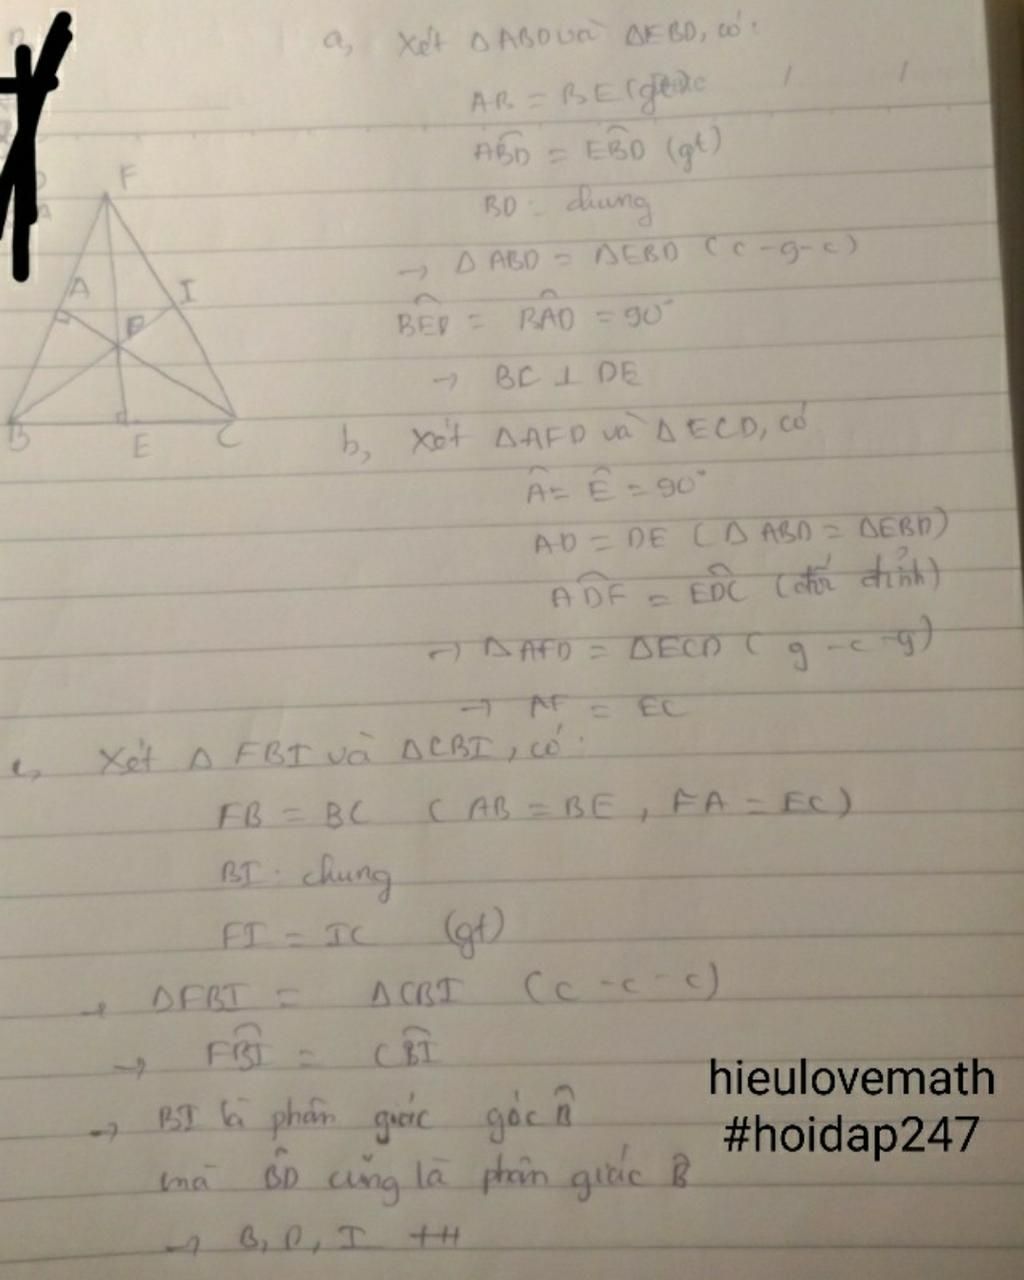 a, Xét ΔABD và ΔEBD, có:
AB = BE (gt)
ABD̂ = EBD̂ (gt)
BD: chung
→ ΔABD = ΔEBD (c-g-c)
BED̂ = BAD̂ = 90°
→ BC ⊥ DE
F
A I
D
B E C
b, Xét ΔAFD và ΔECD, có
Â = Ê = 90°
AD = DE (ΔABD = ΔEBD)
ADF̂ = EDĈ (đối đỉnh)
→ ΔAFD = ΔECD (g-c-g)
→ AF = EC
c, Xét ΔFBI và ΔCBI, có:
FB = BC (AB = BE, FA = EC)
BI: chung
FI = IC (gt)
→ ΔFBI = ΔCBI (c-c-c)
→ FBÎ = CBÎ
→ BI là phân giác góc B̂
mà BD cũng là phân giác B̂
→ B, D, I tH
hieulovemath
#hoidap247